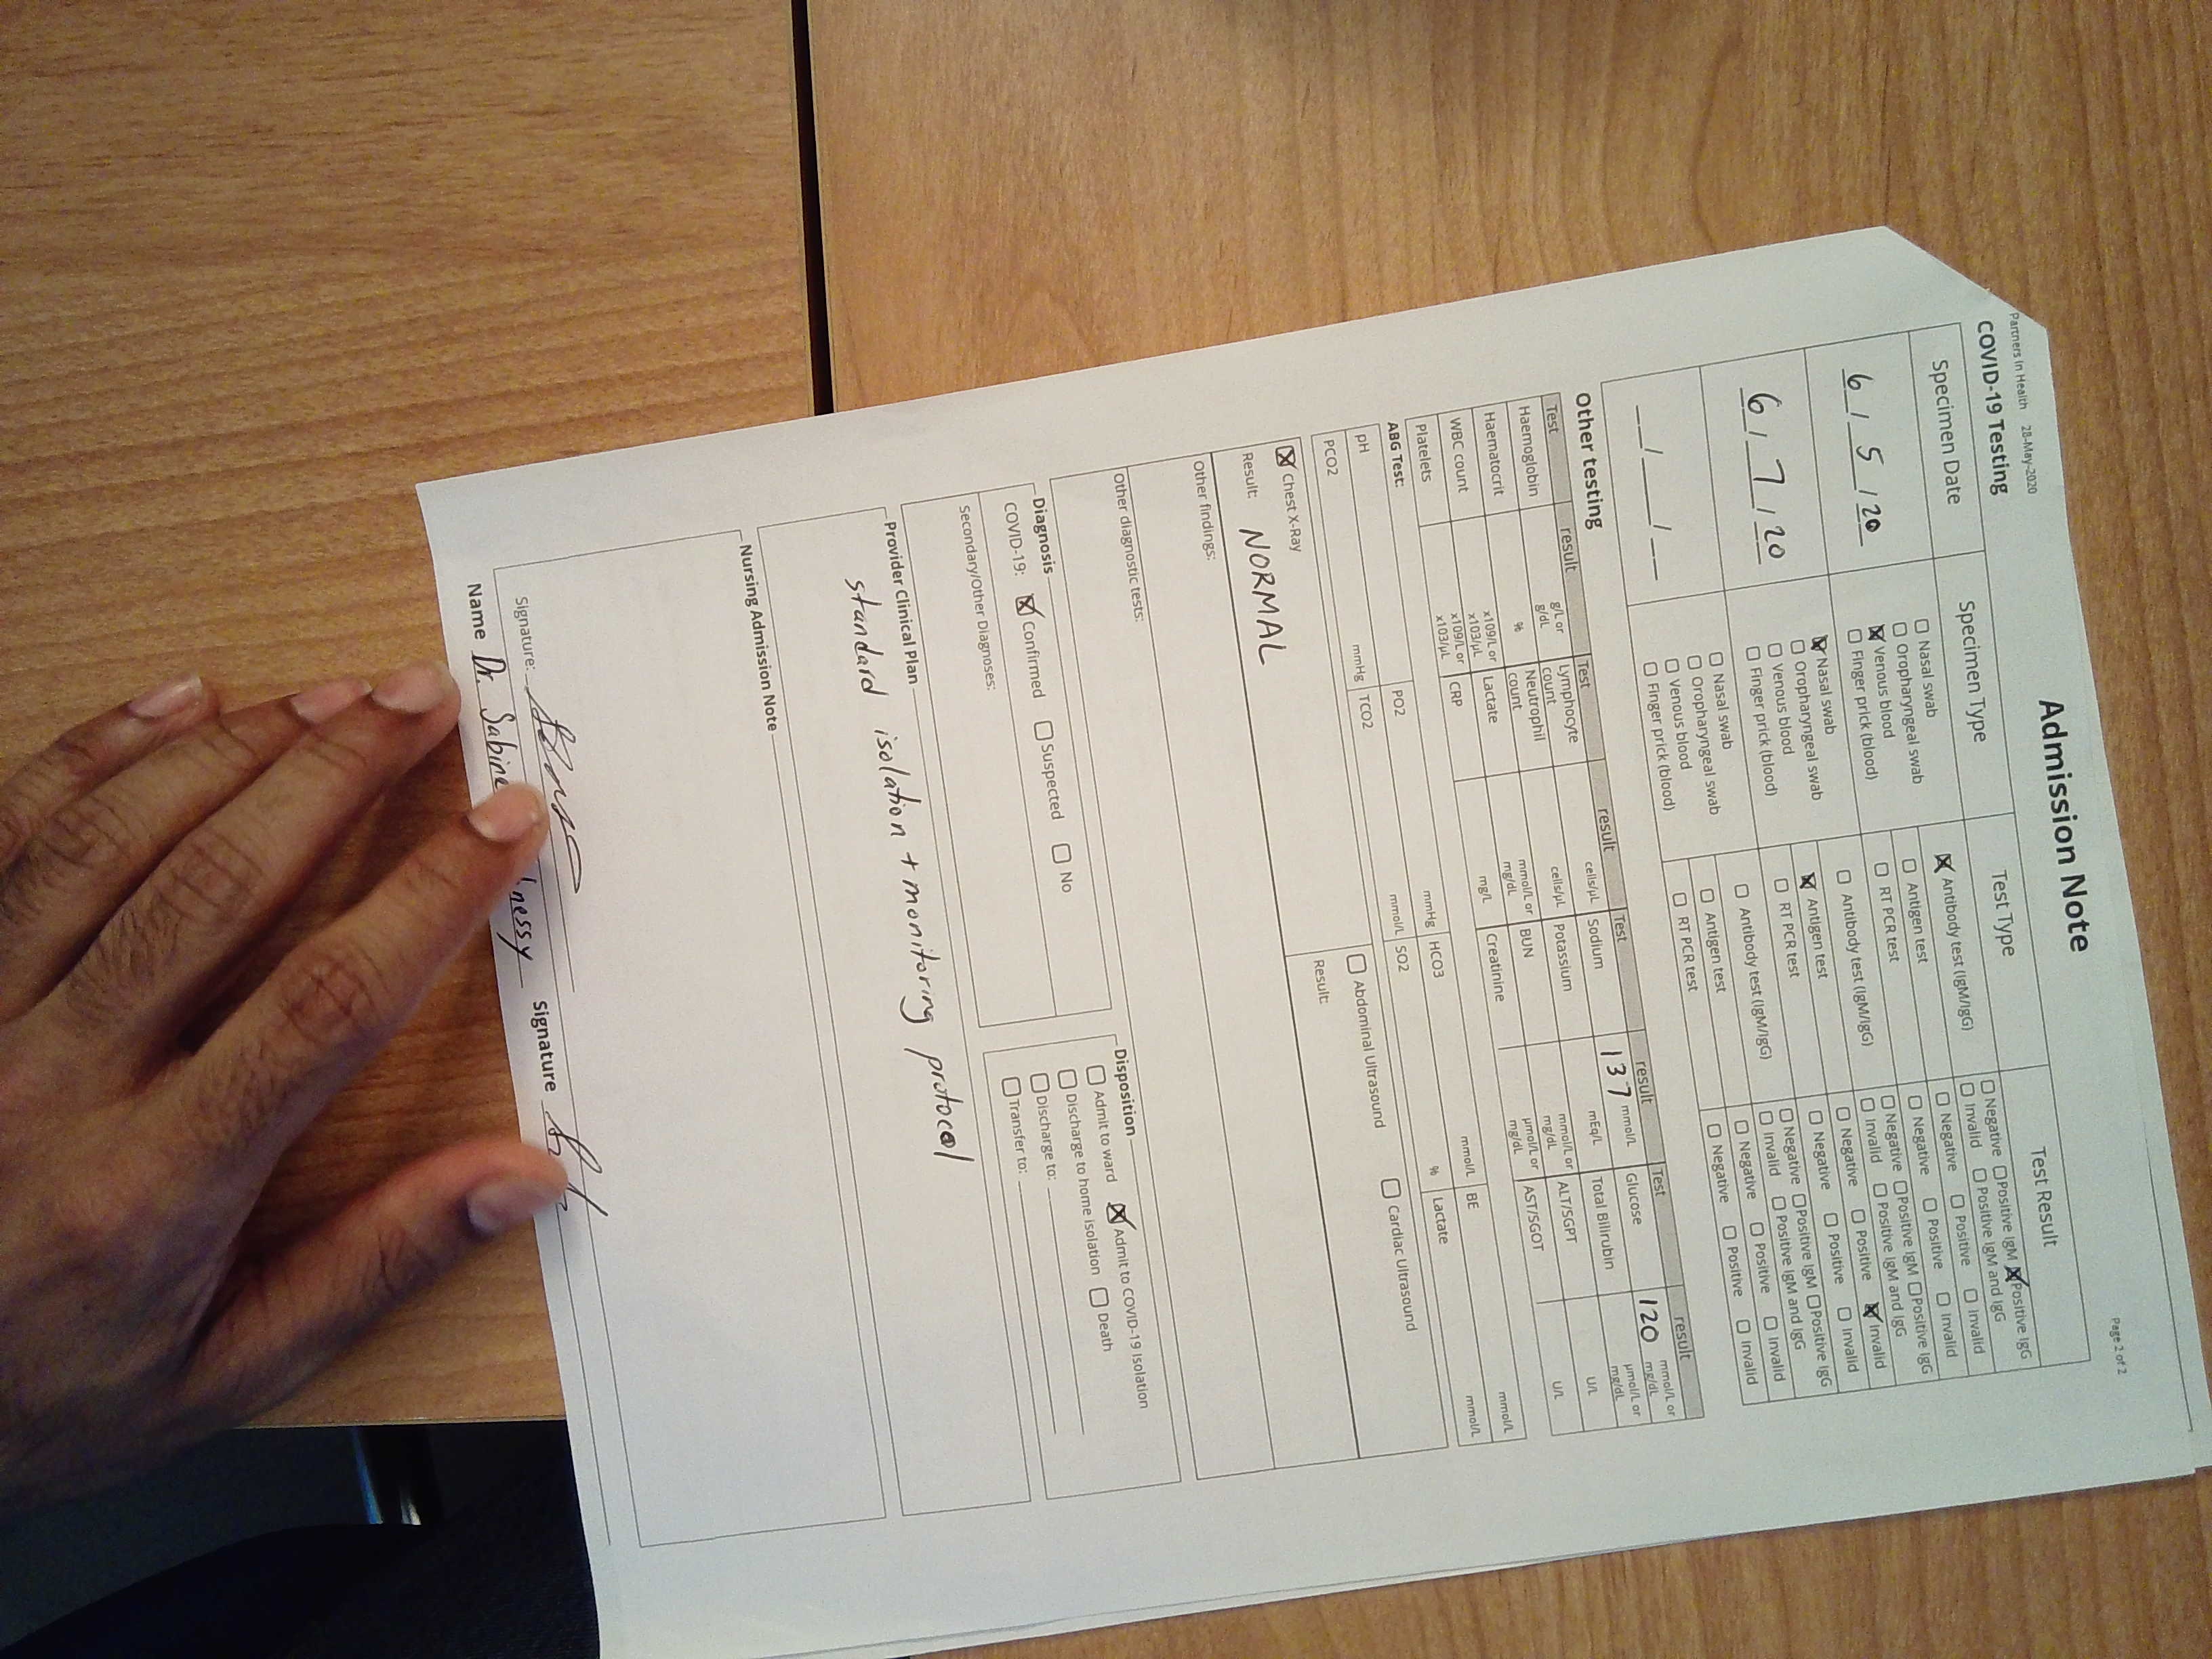 Partners In Health 28-May-2020
Page 2 of 2
Admission Note
COVID-19 Testing
Specimen Date Specimen Type Test Type Test Result
6 / 5 / 20
☐ Nasal swab
☐ Oropharyngeal swab
☒ Venous blood
☐ Finger prick (blood)
☒ Antibody test (IgM/IgG)
☐ Antigen test
☐ RT PCR test
☐ Negative ☐ Positive IgM ☒ Positive IgG
☐ Invalid ☐ Positive IgM and IgG
☐ Negative ☐ Positive ☐ Invalid
☐ Negative ☐ Positive ☐ Invalid
6 / 7 / 20
☒ Nasal swab
☐ Oropharyngeal swab
☐ Venous blood
☐ Finger prick (blood)
☐ Antibody test (IgM/IgG)
☒ Antigen test
☐ RT PCR test
☐ Negative ☐ Positive IgM ☐ Positive IgG
☐ Invalid ☐ Positive IgM and IgG
☐ Negative ☐ Positive ☒ Invalid
☐ Negative ☐ Positive ☐ Invalid
__ / __ / __
☐ Nasal swab
☐ Oropharyngeal swab
☐ Venous blood
☐ Finger prick (blood)
☐ Antibody test (IgM/IgG)
☐ Antigen test
☐ RT PCR test
☐ Negative ☐ Positive IgM ☐ Positive IgG
☐ Invalid ☐ Positive IgM and IgG
☐ Negative ☐ Positive ☐ Invalid
☐ Negative ☐ Positive ☐ Invalid
Other testing
Test result Test result Test result Test result
Haemoglobin g/L or g/dL Lymphocyte count cells/µL Sodium 137 mmol/L Glucose 120 mmol/L or mg/dL
Haematocrit % Neutrophil count cells/µL Potassium mEq/L Total Bilirubin µmol/L or mg/dL
WBC count x109/L or x103/µL Lactate mmol/L or mg/dL BUN mmol/L or mg/dL ALT/SGPT U/L
Platelets x109/L or x103/µL CRP mg/L Creatinine µmol/L or mg/dL AST/SGOT U/L
ABG Test:
pH PO2 mmHg HCO3 mmol/L BE mmol/L
PCO2 mmHg TCO2 mmol/L SO2 % Lactate mmol/L
☒ Chest X-Ray ☐ Abdominal Ultrasound ☐ Cardiac Ultrasound
Result: NORMAL Result:
Other findings:
Other diagnostic tests:
Diagnosis
COVID-19: ☒ Confirmed ☐ Suspected ☐ No
Secondary/Other Diagnoses:
Disposition
☐ Admit to ward ☒ Admit to COVID-19 Isolation
☐ Discharge to home isolation ☐ Death
☐ Discharge to:
☐ Transfer to:
Provider Clinical Plan
standard isolation + monitoring protocol
Nursing Admission Note
Signature:
Name Dr. Sabine nessy Signature